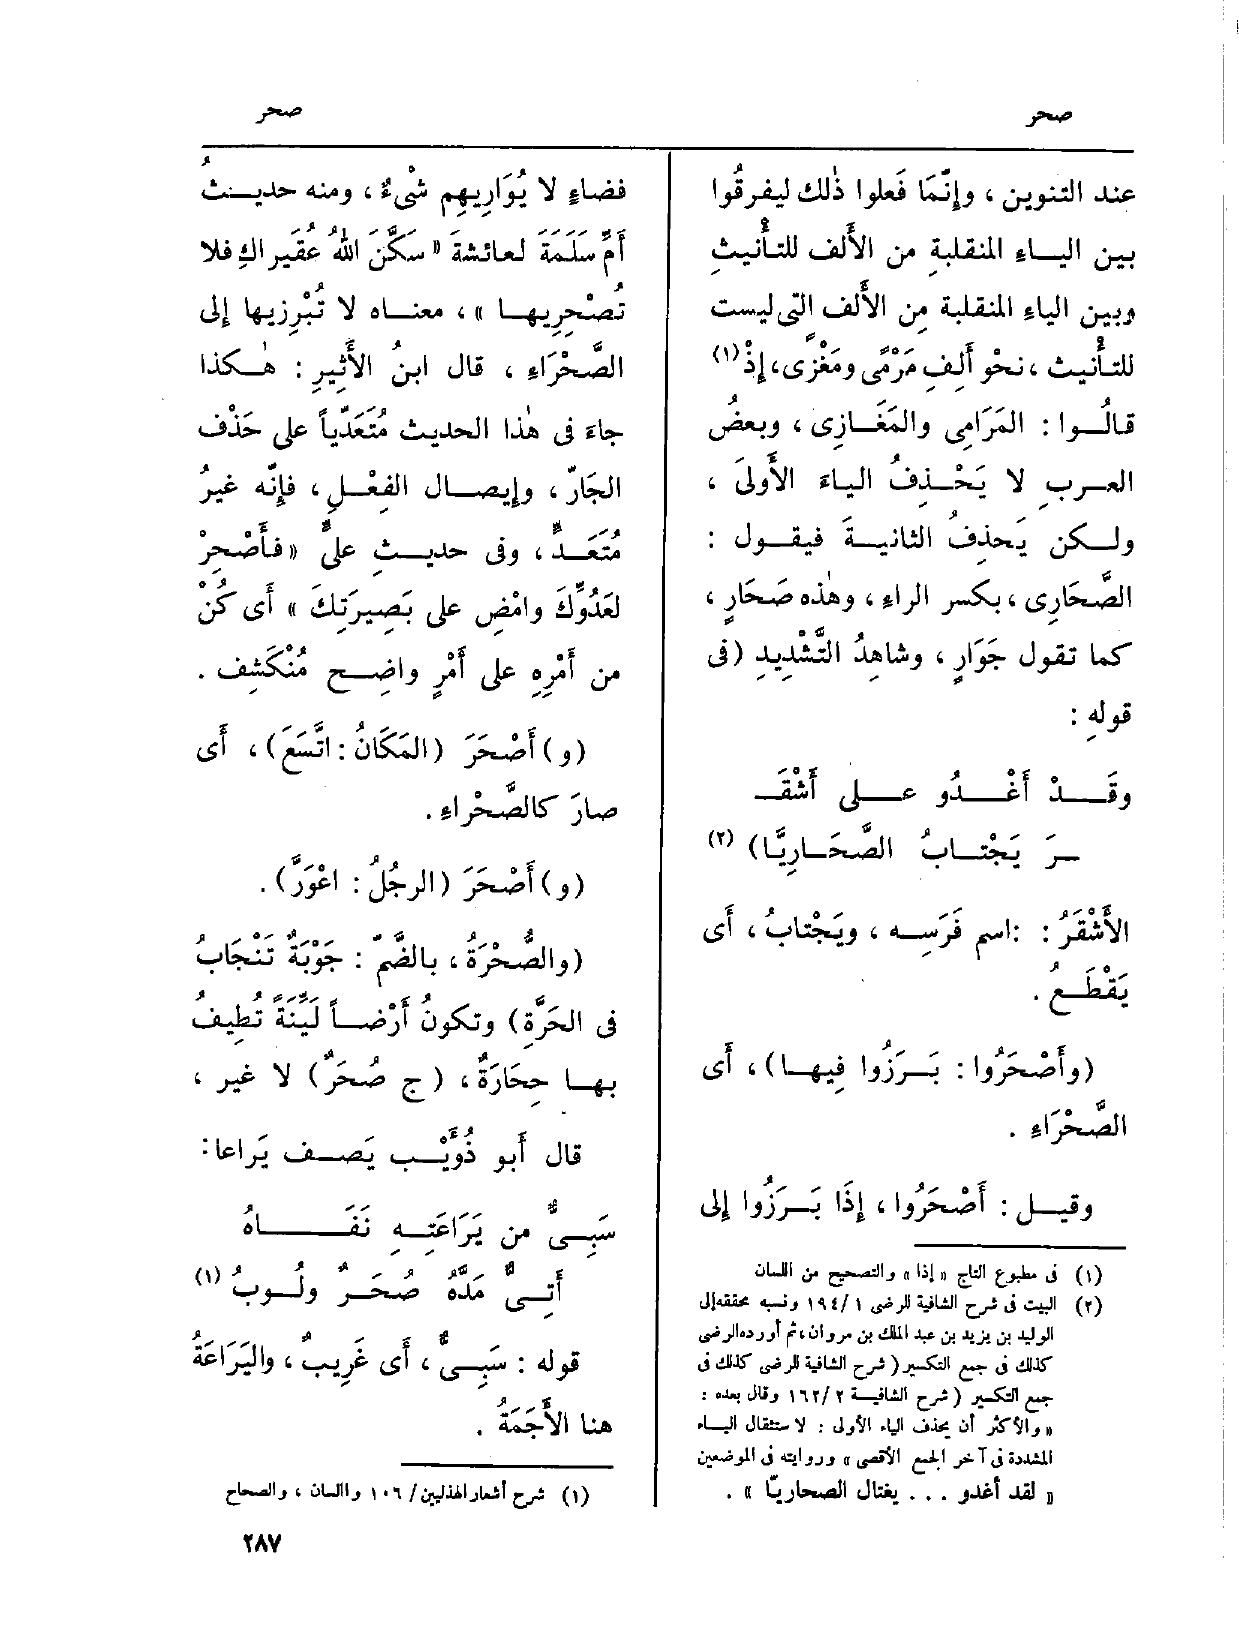 صحر
صحر
عند التنوين ، وإنَّمَا فَعلوا ذٰلك ليفرقُوا
بين اليـاءِ المنقلبةِ من الأَلف للتـأْنيثِ
وبين الياءِ المنقلبة مِن الأَلف التى ليست
للتـأْنيث ، نحْو أَلِفِ مَرْمًى ومَغْزًى، إِذْ (١)
قالُـوا : المَرَامِى والمَغَـازِى ، وبعضُ
العـرب لا يَحْـذِفُ اليـاءَ الأُولَى ،
ولـكن يَحذِفُ الثانيـةَ فيقـول :
الصَّحَارِى ، بكسر الراءِ ، وهٰذه صَحَارٍ ،
كما تقول جَوَارٍ ، وشاهدُ التَّشْدِيدِ (فى
قولهِ :
وقَـــدْ أَغْــدُو عــلى أَشْقَـ
ـرَ يَجْتـابُ الصَّحَـارِيَّا) (٢)
الأَشْقَرُ : اسم فَرَسِـه ، ويَجْتابُ ، أَى
يَقْطَـعُ .
(وأَصْحَرُوا : بَـرَزُوا فِيهـا) ، أَى
الصَّحْرَاءِ .
وقيـل : أَصْحَرُوا ، إِذَا بَـرَزُوا إِلى
(١) فى مطبوع التاج «إذا» والتصحيح من اللسان
(٢) البيت فى شرح الشافية للرضى ١/ ١٩٤ ونسبه محققه إلى
الوليد بن يزيد بن عبد الملك بن مروان، ثم أورده الرضى
كذلك فى جمع التكسير ( شرح الشافية للرضى كذلك فى
جمع التكسير (شرح الشافيـة ٢/ ١٦٢ وقال بعده :
«والأكثر أن يحذف الياء الأولى : لاستثقال اليـاء
المشددة فى آخر الجمع الأقصى» وروايته فى الموضعين
« لقد أغدو . . . يغتال الصحاريّا » .
فضاءٍ لا يُوَارِيهِم شْىءٌ ، ومنه حديـثُ
أُمِّ سَلَمَةَ لعائشةَ « سَكَّنَ اللهُ عُقَيْراكِ فلا
تُصْحِرِيهـا »، معنـاه لا تُبْرِزِيها إِلى
الصَّحْرَاءِ ، قال ابنُ الأَثِيرِ : هٰـكذا
جاءَ فى هٰذا الحديث مُتَعَدِّياً على حَذْف
الجَارّ ، وإِيصـال الفِعْـلِ ، فإِنّه غيرُ
مُتَعَـدٍّ ، وفى حديـثِ علىٍّ «فأَصْحِرْ
لعَدُوِّكَ وامْضِ على بَصِيرَتِكَ » أَى كُنْ
من أَمْرِهِ على أَمْرٍ واضِـح مُنْكَشِف .
(و) أَصْحَرَ (المَكَانُ : اتَّسَعَ) ، أَى
صارَ كالصَّحْراءِ .
(و) أَصْحَرَ (الرجُلُ : اعْوَرَّ) .
(والصُّحْرَةُ ، بالضَّمّ : جَوْبَةٌ تَنْجَابُ
فى الحَرَّةِ) وتكونُ أَرْضـاً لَيِّنَةً تُطِيفُ
بهـا حِجَارَةٌ ، (ج صُحَرٌ) لا غير ،
قال أَبو ذُؤَيْـب يَصـف يَراعا :
سَبِـىٌّ من يَرَاعَتِـهِ نَفَــــاهُ
أَتِـىٌّ مَدَّهُ صُحَـرٌ ولُـوبُ (١)
قوله : سَبِـىٌّ ، أَى غَرِيبٌ ، واليَرَاعَةُ
هنا الأَجَمَةُ .
(١) شرح أشعار الهذليين/ ١٠٦ واللسان ، والصحاح
٢٨٧